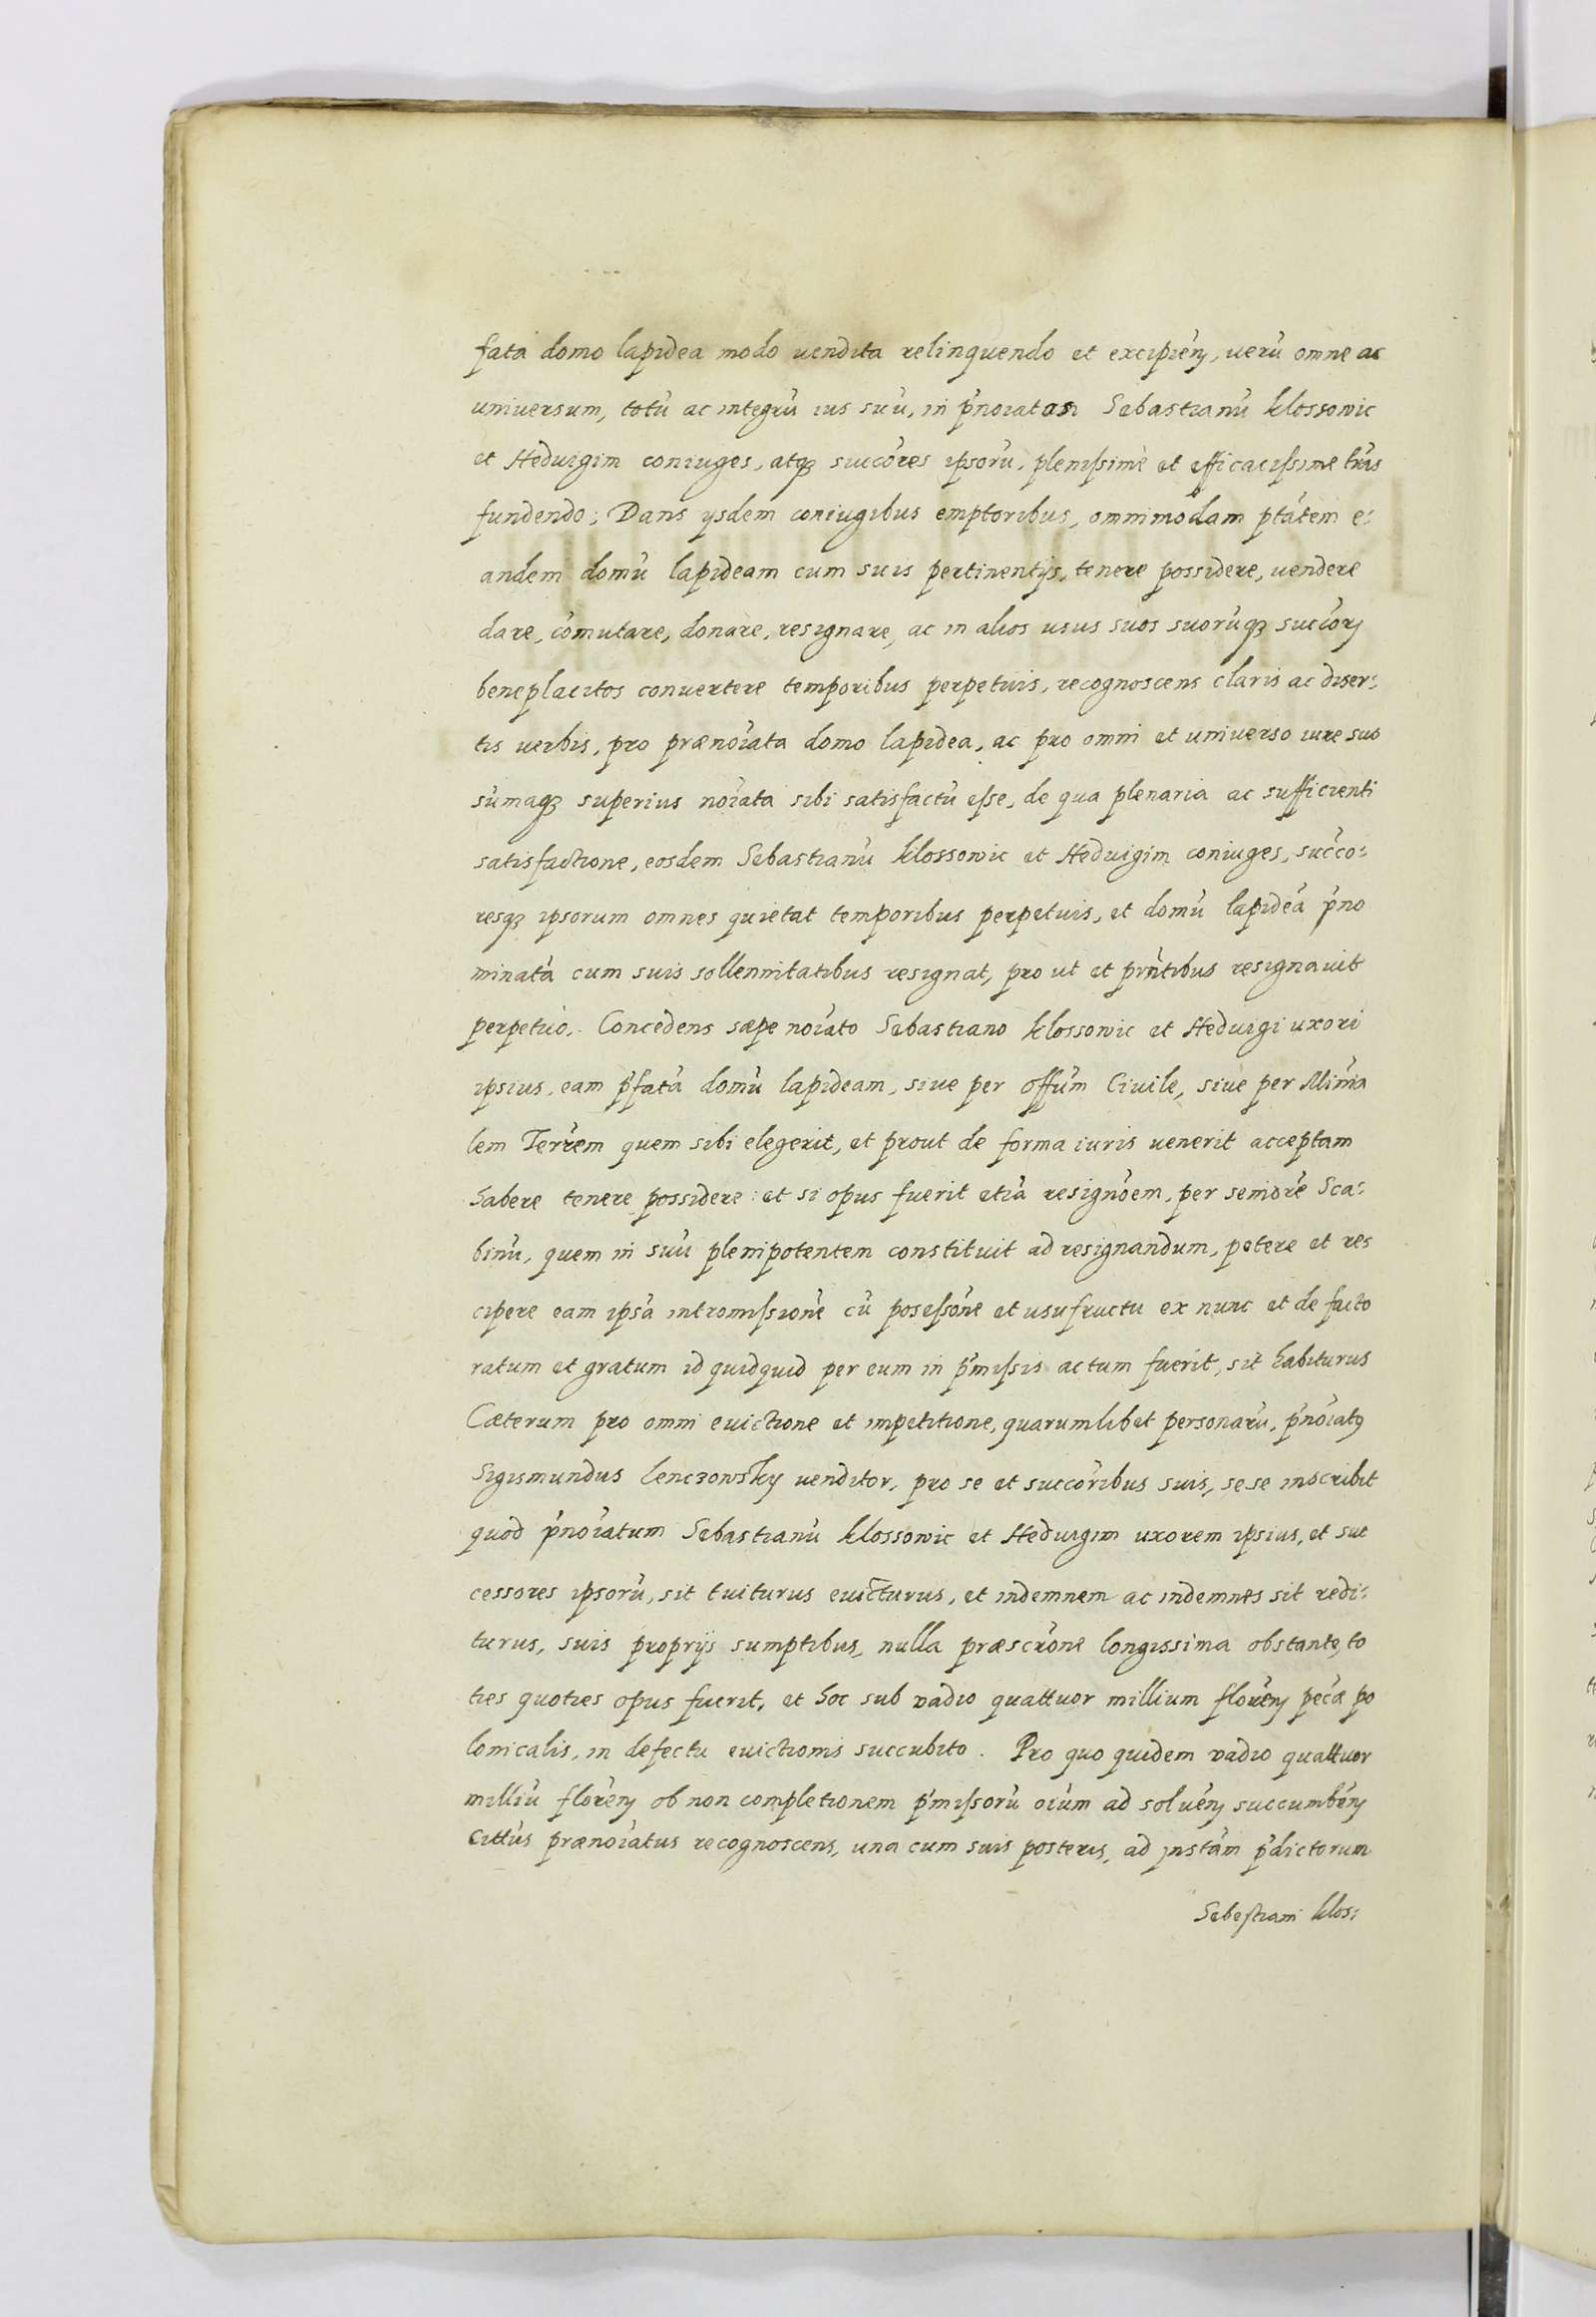 fata domo lapidea modo vendita relinquendo et excipień, uerũ omne ac
universum, totũ ac integrũ ius suũ, in p̃noĩatos Sebastianũ Klossowic
et Hedvigim coniuges, atqꝫ succõres ipsorũ, plenissimè et efficacissime trãs
fundendo; Dans ysdem coniugibus emptoribus, omnimodam ptãtem e:
andem domũ lapideam cum suis pertinentijs, tenere possidere, vendere
dare, cõmutare, donare, resignare, ac in alios usus suos suorũqꝫ succõrꝫ
beneplacitos convertere temporibus perpetuis, recognoscens claris ac diser:
tis verbis, pro prænoĩata domo lapidea, ac pro omni et universo iure suo
sũmaqꝫ superius noĩata sibi satisfactũ esse, de qua plenaria ac sufficienti
satisfactione, eosdem Sebastianũ Klossowic et Hedvigim coniuges, succo:
resqꝫ ipsorum omnes quietat temporibus perpetuis, et domũ lapideã p̃no
minatã cum suis sollennitatibus resignat, pro ut et pñtibus resignavit
perpetuò. Concedens sæpe noĩato Sebastiano Klossowic et Hedvigi uxori
ipsius, eam p̃fatã domũ lapideam, sive per offũm Civile, sive per Minĩa
lem Terr̃em quem sibi elegerit, et prout de forma iuris venerit acceptam
habere tenere possidere: et si opus fuerit etiã resignõem, per seniorẽ Sca:
binũ, quem in suũ plenipotentem constituit ad resignandum, petere et res
cipere eam ipsã intromissionẽ cũ possessõne et usufructu ex nunc et de facto
ratum et gratum id quidquid per eum in p̃missis actum fuerit, sit habiturus
Cæterum pro omni evictione et impetitione, quarumlibet personarũ, p̃noĩatꝯ
Sigismundus Lenczowsky venditor, pro se et succõribus suis, sese inscribit
quod p̃noĩatum Sebastianũ Klossowic et Hedvigim uxorem ipsius, et suc
cessores ipsorũ, sit tuiturus evicturus, et indemnem ac indemnes sit redi:
turus, suis proprijs sumptibus, nulla præscrõne longissima obstante, to
ties quoties opus fuerit, et hoc sub vadio quattuor millium florenꝫ pecæ po
lonicalis, in defectu evictionis succubito. Pro quo quidem vadio quattuor
milliũ florenꝫ ob non completionem p̃missorũ oĩum ad solvenꝫ succumbenꝫ
Cittũs prænoĩatus recognoscens, una cum suis posteris, ad instãm p̃dictorum
Sebestiani Klos: